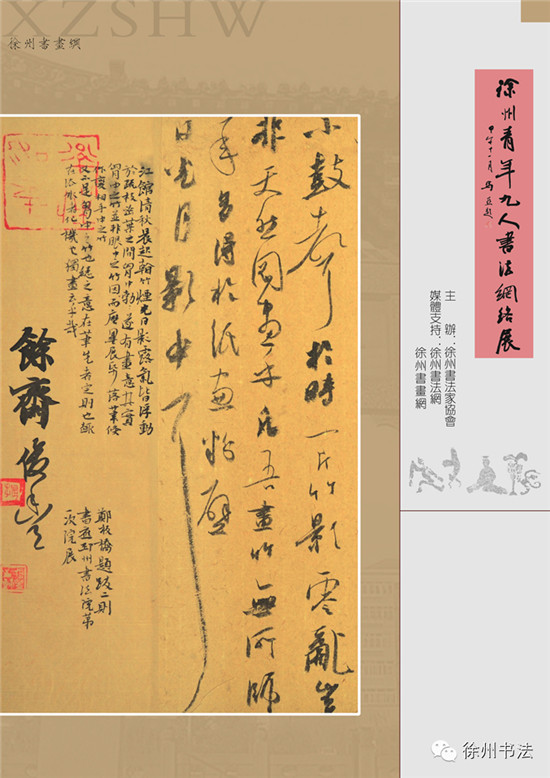 XZSHW
徐州書畫網
徐州青年九人書法網絡展
主 辦：徐州書法家協會
媒體支持：徐州書法網
徐州書畫網
小鼓聲於時一片竹影零亂豈
非天然圖畫乎凡吾畫竹無所師
承多得於紙窗粉壁
日光月影中耳
江館清秋晨起看竹煙光日影露氣皆浮動
於疏枝密葉之間胸中勃 遂有畫意其實
胸中之竹並非眼中之竹因而磨墨展紙落筆倏
作變相手中之竹
又不是胸中之竹也總之意在筆先者定則也趣
在法外者化機也獨畫云乎哉
餘齋
鄭板橋題跋二則
書應邳州書法院第
一次院展
徐州书法